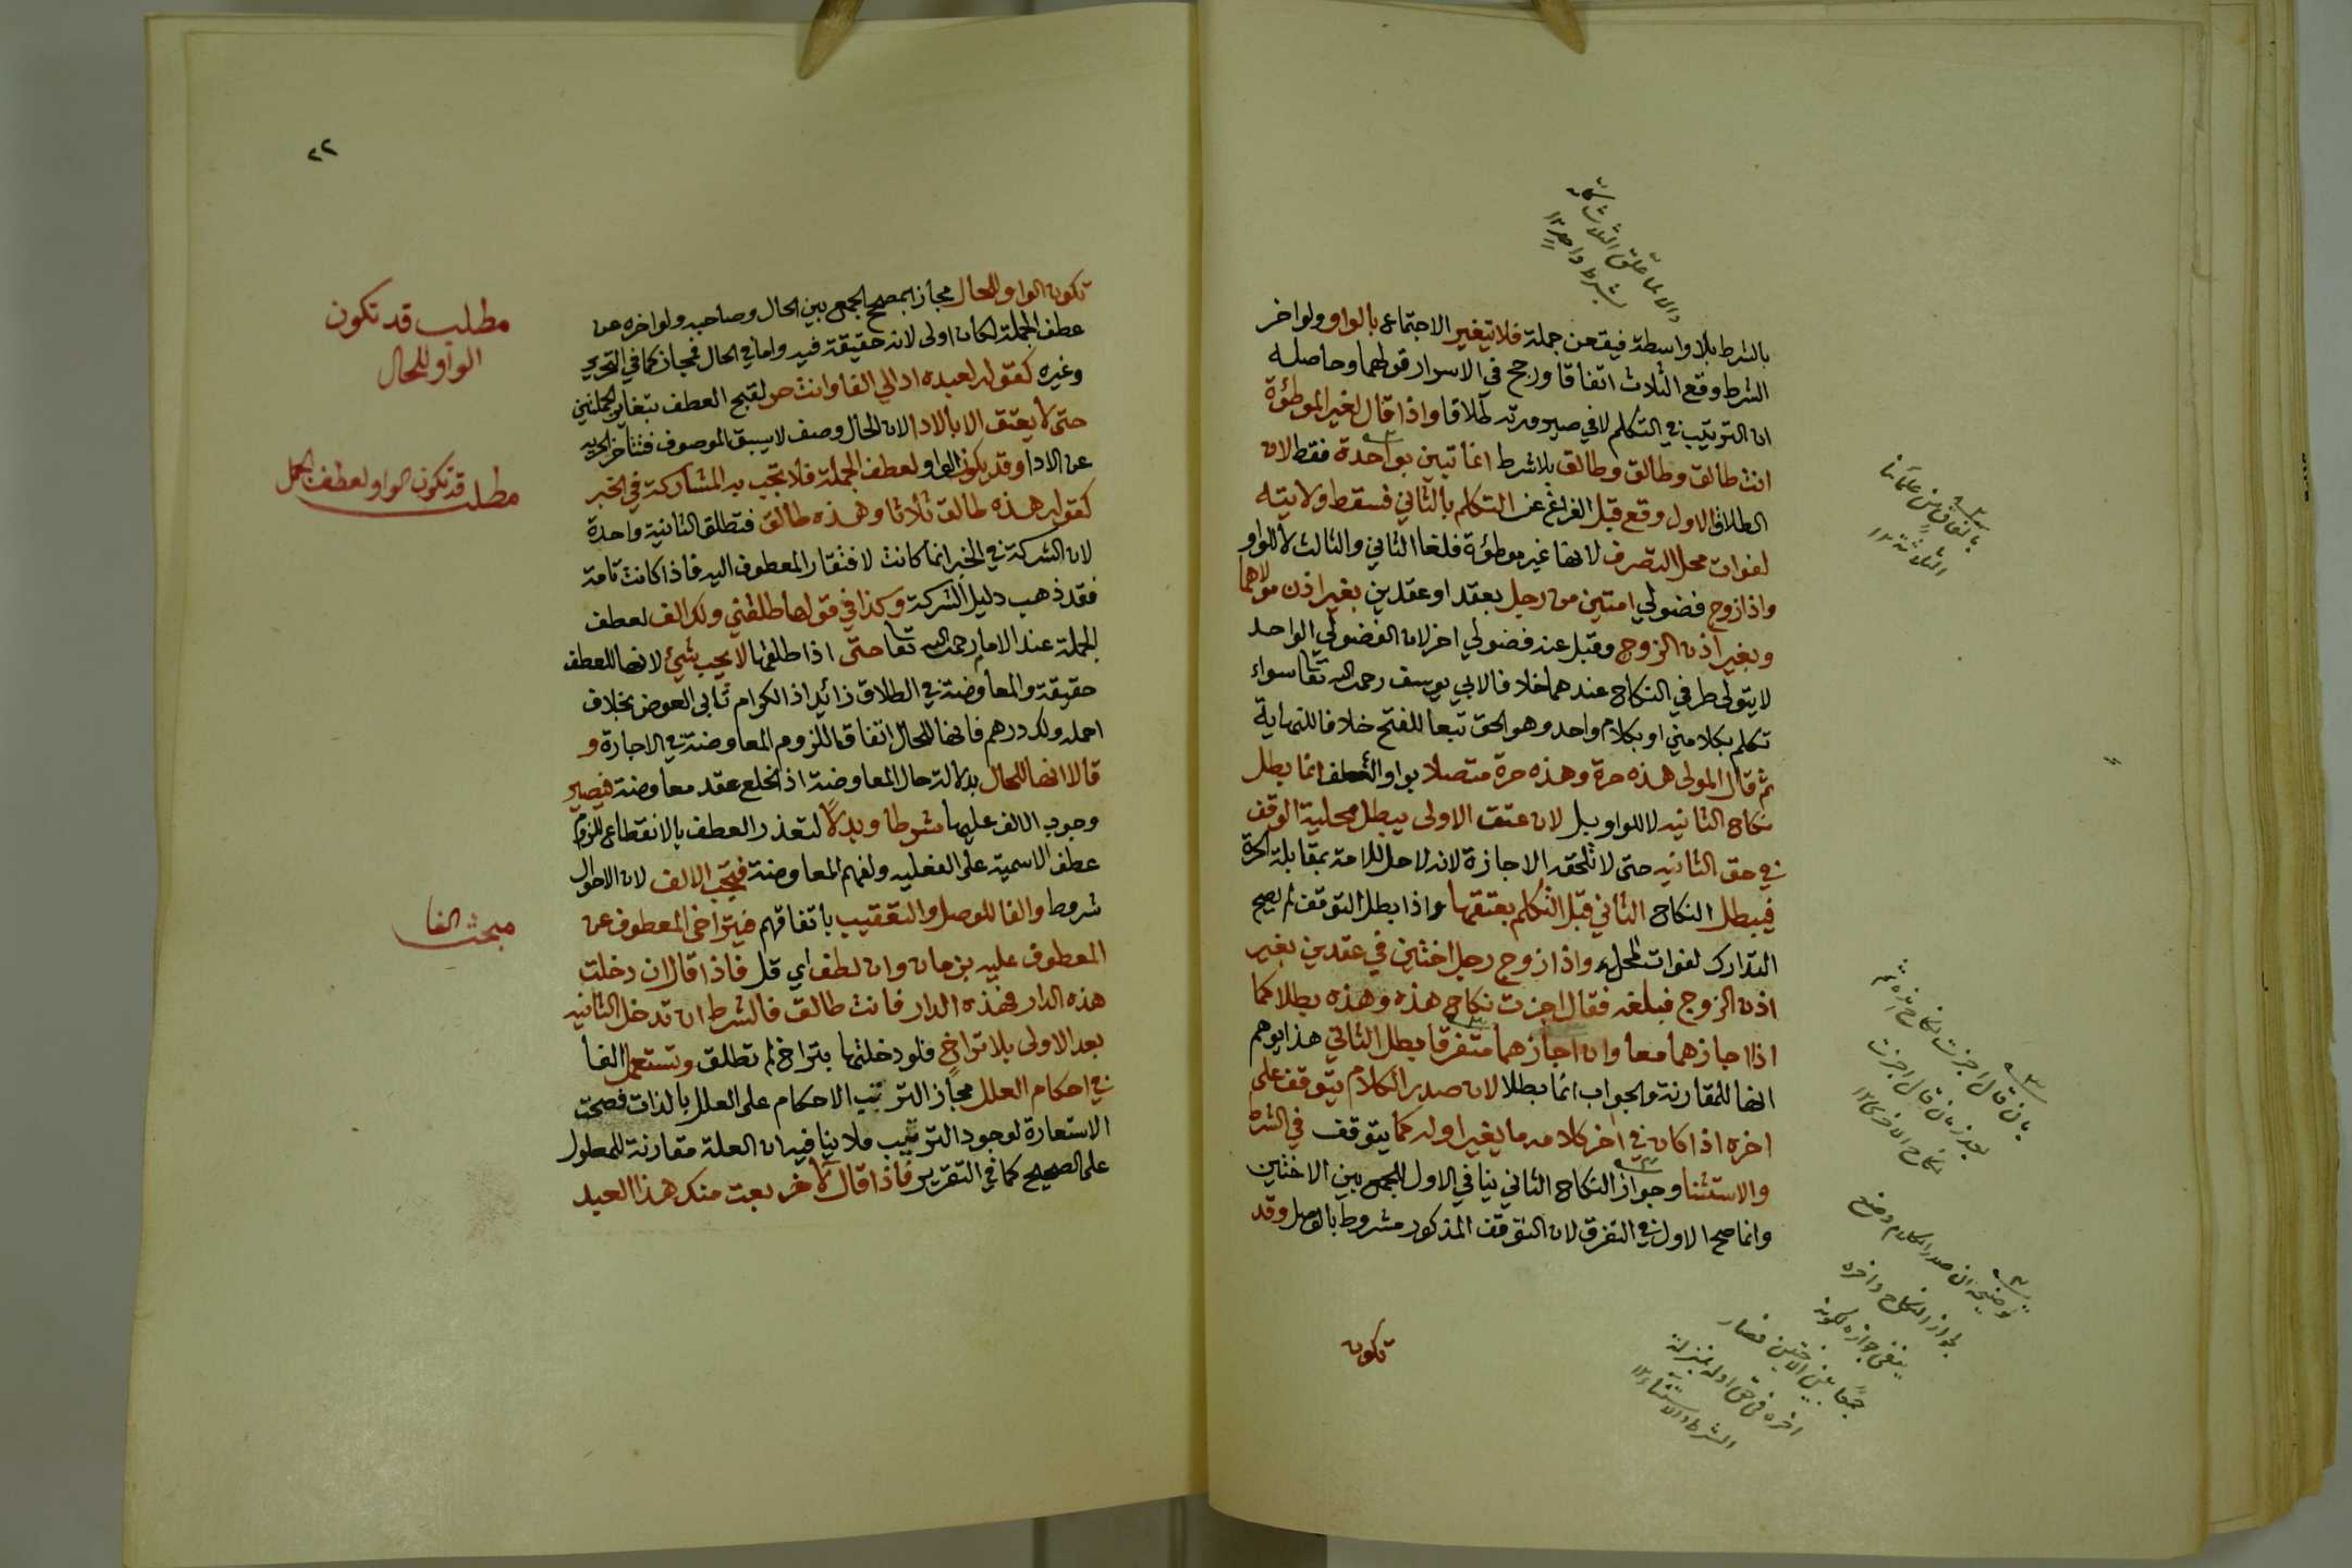 بالشرط بلا واسطة فيقعن جملة فلا يتغير الاجتماع بالواو ولو اخر
الشرط وقع الثلاث اتفاقا ورجح في الاسرار قولهما وحاصله
ان الترتيب في التكلم لا في صيرورته طلاقا واذا قال لغير الموطؤة
انت طالق وطالق وطالق بلا شرط انما تبين بواحدة فقط لان
الطلاق الاول وقع قبل الفراغ عن التكلم بالثاني فسقط ولايته
لفوات محل التصرف لانها غير موطؤة فلغا الثاني والثالث لا للواو
واذا زوج فضولي امتين من رجل بعقد او عقدين بغير اذن مولاهما
وبغير اذن الزوج وقبل عنه فضولي اخر لان الفضولي الواحد
لا يتولى طرفي النكاح عندهما خلافا لابي يوسف رحمه الله تعا سواء
تكلم بكلامين او بكلام واحد وهو الحق تبعا للفتح خلافا للنهاية
ثم قال المولى هذه حرة وهذه حرة متصلا بواو العطف انما بطل
نكاح الثانيه لا للواو بل لان عتق الاولى يبطل محلية الوقف
في حق الثانيه حتى لا تلحقه الاجازة لانه لا حل للامة بمقابلة الحرة
فيبطل النكاح الثاني قبل التكلم بعتقها واذا بطل التوقف لم يصح
التدارك لفوات المحل واذا زوج رجل اختين في عقدين بغير
اذن الزوج فبلغه فقال اجزت نكاح هذه وهذه بطلا كما
اذا اجازهما معا وان اجازهما متفرقا بطل الثاني هذا يوهم
انها للمقارنة والجواب انما بطلا لان صدر الكلام يتوقف على
اخره اذا كان في اخر كلامه ما يغير اوله كما يتوقف في الشرط
والاستثنا وجواز النكاح الثاني ينافي الاول للجمع بين الاختين
وانما صح الاول في التفرق لان التوقف المذكور مشروط بالوصل وقد
تكون
والا لما علق الثلاث كله
بشرط واحد ١٢
باتفاق من علمائنا
الثلاثة ١٢
بان قال اجزت نكاح هذه ثم
بعد زمان قال اجزت
نكاح الاخرى ١٢
توضيحه ان صدر الكلام وضع
لجواز النكاح واخره
ينفي جوازه لكونه
جمعا بين الاختين فصار
اخره في حق اوله بمنزلة
الشرط والاستثناء ١٢
٢٢
تكون الواو للحال مجازا بمصحح الجمع بين الحال وصاحبه ولو اخره عن
عطف الجملة لكان اولى لانه حقيقة فيه واما في الحال فمجاز كما في التحرير
وغيره كقوله لعبده اد الي الفا وانت حر لقبح العطف بتغاير الجملتين
حتى لا يعتق الا بالادا لان الحال وصف لا يسبق الموصوف فتتأخر الحريه
عن الادا وقد يكون الواو لعطف الجملة فلا تجب به المشاركة في الخبر
كقوله هذه طالق ثلاثا وهذه طالق فتطلق الثانية واحدة
لان الشركة في الخبر انما كانت لافتقار المعطوف اليه فاذا كانت تامة
فقد ذهب دليل الشركة وكذا في قولها طلقني ولك الف لعطف
الجملة عند الامام رحمه الله تعا حتى اذا طلقها لا يجب شيئ لانها للعطف
حقيقة والمعاوضة في الطلاق زائد اذ الكرام تأبى العوض بخلاف
احمله ولك درهم فانها للحال اتفاقا للزوم المعاوضة في الاجارة و
قالا انها للحال بدلالة حال المعاوضة اذ الخلع عقد معاوضة فيصير
وجوب الالف عليها شرطا وبدلا لتعذر العطف بالانقطاع للزوم
عطف الاسمية على الفعليه ولفهم المعاوضة فيجب الالف لان الاحوال
شروط والفا للوصل والتعقيب باتفاقهم فيتراخى المعطوف عن
المعطوف عليه بزمان وان لطف اي قل فاذا قال ان دخلت
هذه الدار فهذه الدار فانت طالق فالشرط ان تدخل الثانيه
بعد الاولى بلا تراخ فلو دخلتها بتراخ لم تطلق وتستعمل الفا
في احكام العلل مجازا لترتيب الاحكام على العلل بالذات فصحت
الاستعارة لوجود الترتيب ولا ينافيه ان العلة مقارنة للمعلول
على الصحيح كما في التقرير فاذا قال لآخر بعت منك هذا العبد
مطلب قد تكون
الواو للحال
مطلب قد تكون الواو لعطف الجمل
مبحث الفا